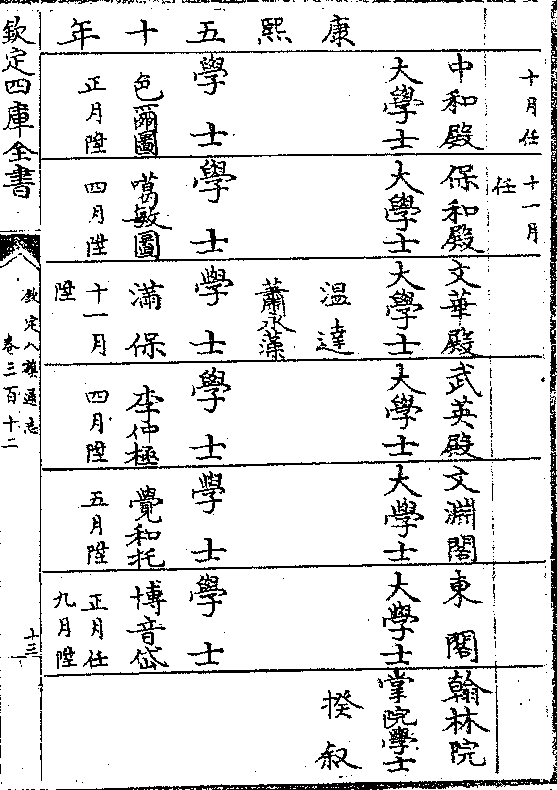 十月任
十一月
任
中和殿 保和殿 文華殿 武英殿 文淵閣 東閣 翰林院
大學士 大學士 大學士 大學士 大學士 大學士 掌院學士
康熙五十年
溫達 揆叙
蕭永藻
學士 學士 學士 學士 學士 學士
色爾圖 噶敏圖 滿保 李仲極 覺和托 博音岱
正月陞 四月陞 十一月 四月陞 五月陞 正月任
陞 九月陞
欽定四庫全書
欽定八旗通志
卷三百十二
十三